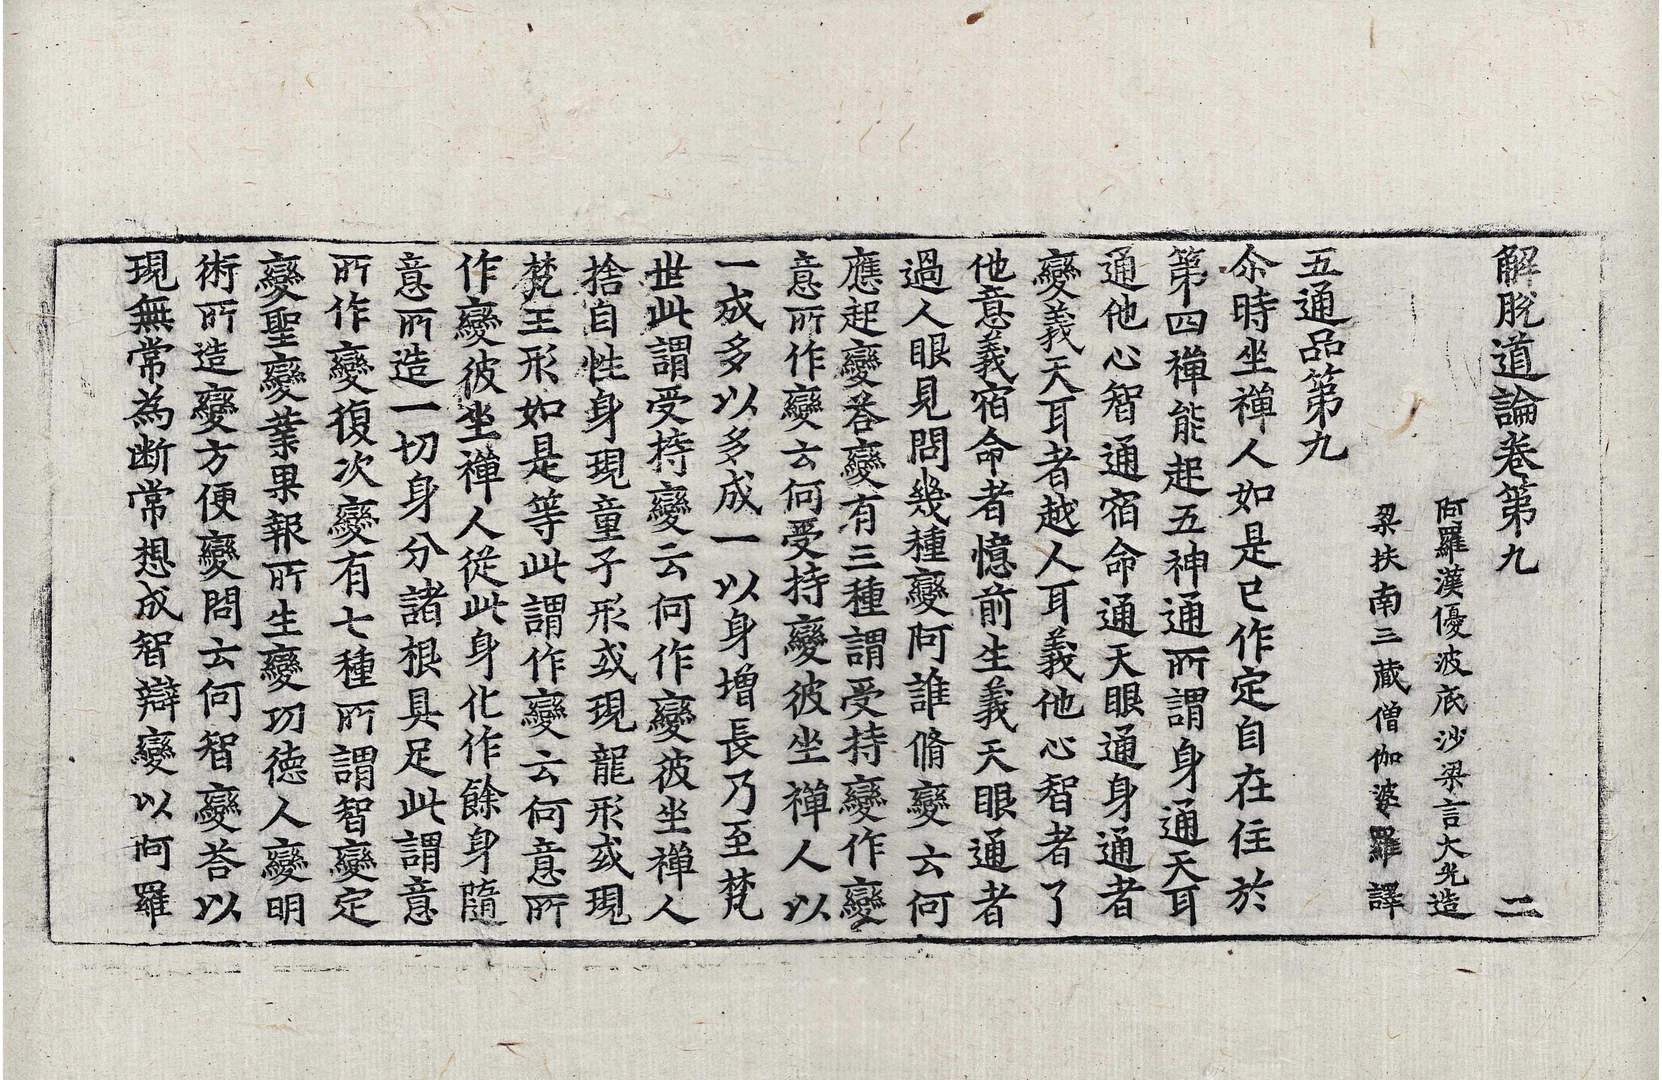 解脫道論卷第九 二
阿羅漢優波底沙梁言大光造
梁扶南三藏僧伽婆羅譯
五通品第九
尒時坐禪人如是已作定自在住於
第四禪能起五神通所謂身通天耳
通他心智通宿命通天眼通身通者
變義天耳者越人耳義他心智者了
他意義宿命者憶前生義天眼通者
過人眼見問幾種變何誰脩變云何
應起變荅變有三種謂受持變作變
意所作變云何受持變彼坐禪人以
一成多以多成一以身增長乃至梵
世此謂受持變云何作變彼坐禪人
捨自性身現童子形或現龍形或現
梵王形如是等此謂作變云何意所
作變彼坐禪人從此身化作餘身隨
意所造一切身分諸根具足此謂意
所作變復次變有七種所謂智變定
變聖變業果報所生變功德人變明
術所造變方便變問云何智變荅以
現無常為斷常想成智辯變以阿羅